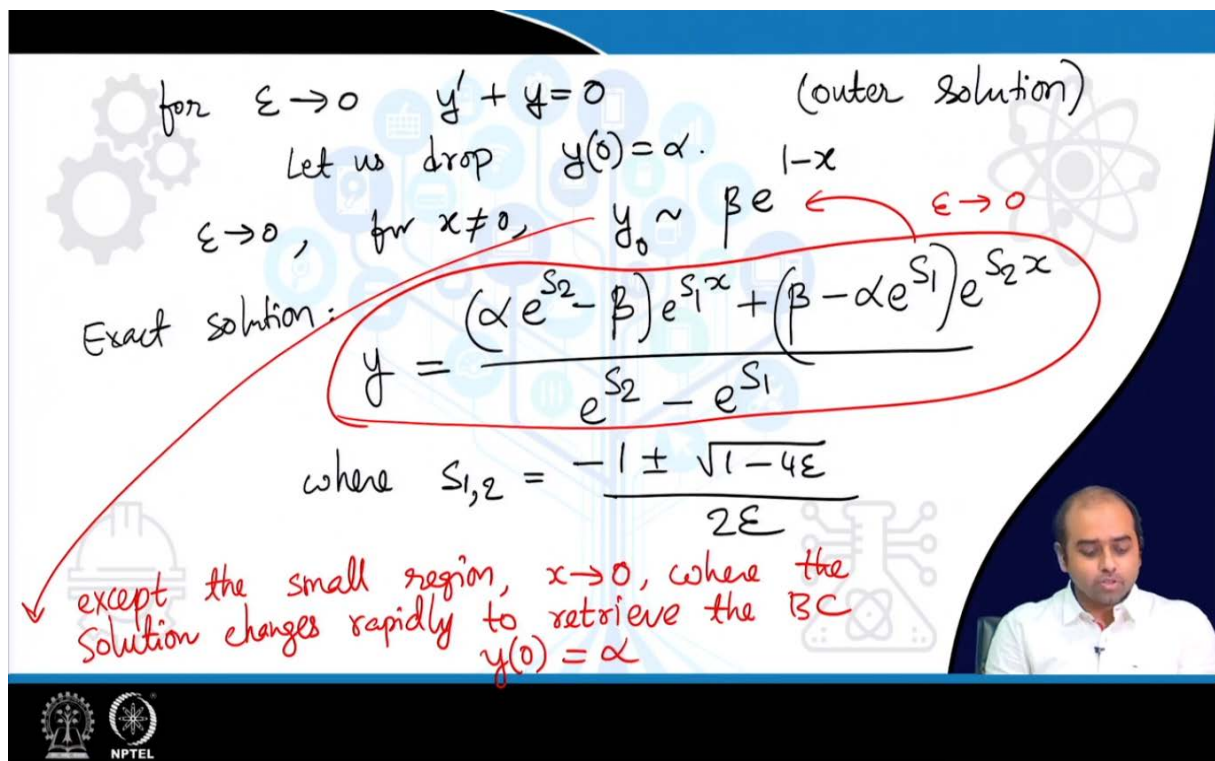 for ε → 0 y' + y = 0 (outer solution)
Let us drop y(0) = α.
ε → 0, for x ≠ 0, y₀ ~ βe^{1-x} ε → 0
Exact solution:
y = \frac{(αe^{S_2} - β)e^{S_1x} + (β - αe^{S_1})e^{S_2x}}{e^{S_2} - e^{S_1}}
where S_{1,2} = \frac{-1 ± \sqrt{1-4ε}}{2ε}
except the small region, x→0, where the
solution changes rapidly to retrieve the BC
y(0) = α
NPTEL